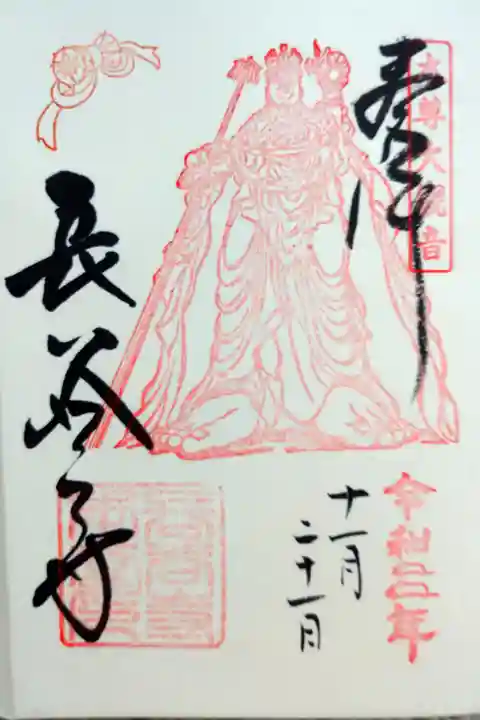 奉拝
本尊大観音
長谷寺
令和三年
十一月
二十一日